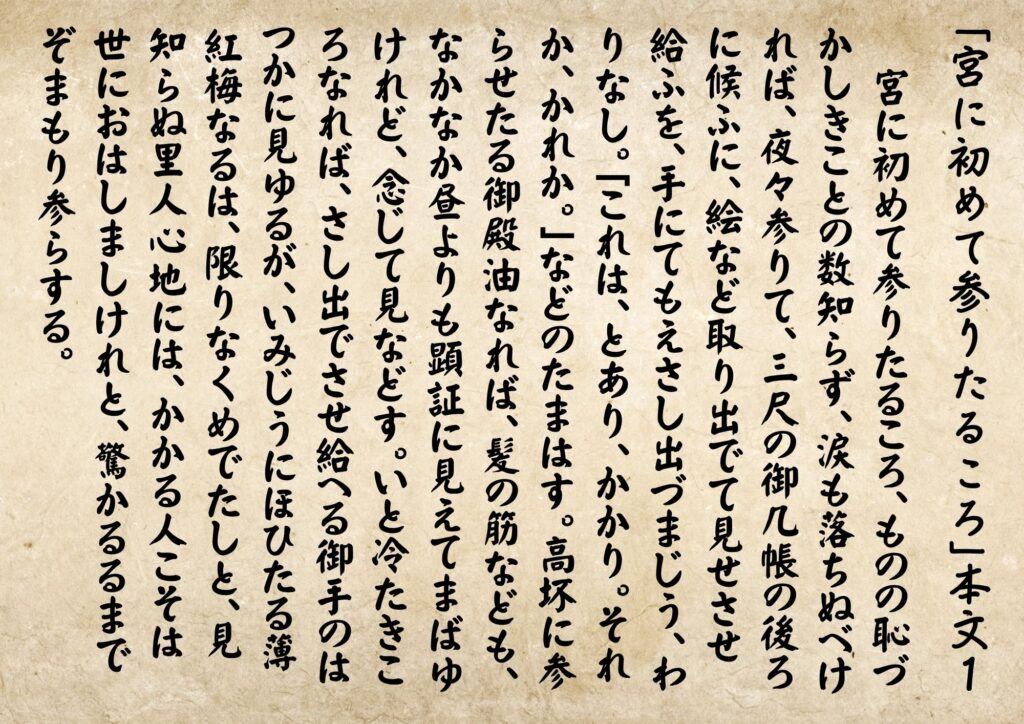 「宮に初めて参りたるころ」本文1
宮に初めて参りたるころ、ものの恥づ
かしきことの数知らず、涙も落ちぬべけ
れば、夜々参りて、三尺の御几帳の後ろ
に候ふに、絵など取り出でて見せさせ
給ふを、手にてもえさし出づまじう、わ
りなし。「これは、とあり、かかり。それ
か、かれか。」などのたまはす。高坏に参
らせたる御殿油なれば、髪の筋なども、
なかなか昼よりも顕証に見えてまばゆ
けれど、念じて見などす。いと冷たきこ
ろなれば、さし出でさせ給へる御手のは
つかに見ゆるが、いみじうにほひたる薄
紅梅なるは、限りなくめでたしと、見
知らぬ里人心地には、かかる人こそは
世におはしましけれと、驚かるるまで
ぞまもり参らする。